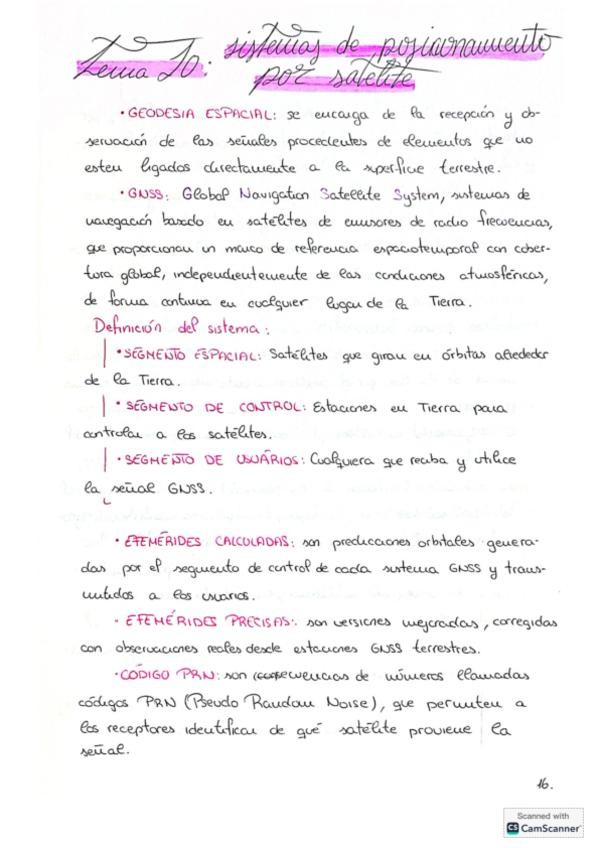 Tema 10: sistemas de posicionamiento
por satélite
• GEODESIA ESPACIAL: se encarga de la recepción y ob-
servación de las señales procedentes de elementos que no
esten ligados directamente a la superficie terrestre.
• GNSS: Global Navigation Satellite System, sistemas de
navegación basado en satélites de emisores de radio frecuencias,
que proporcionan un marco de referencia espaciotemporal con cober-
tura global, independientemente de las condiciones atmosféricas,
de forma continua en cualquier lugar de la Tierra.
Definición del sistema:
• SEGMENTO ESPACIAL: Satélites que giran en órbitas alrededor
de la Tierra.
• SEGMENTO DE CONTROL: Estaciones en Tierra para
controlar a los satélites.
• SEGMENTO DE USUARIOS: Cualquiera que reciba y utilice
la señal GNSS.
• EFEMÉRIDES CALCULADAS: son predicciones orbitales genera-
das por el segmento de control de cada sistema GNSS y trans-
mitidos a los usuarios.
• EFEMÉRIDES PRECISAS: son versiones mejoradas, corregidas
con observaciones reales desde estaciones GNSS terrestres.
• CÓDIGO PRN: son de números llamadas
códigos PRN (Pseudo Random Noise), que permiten a
los receptores identificar de qué satélite proviene la
señal.
16.
Scanned with
CS CamScanner